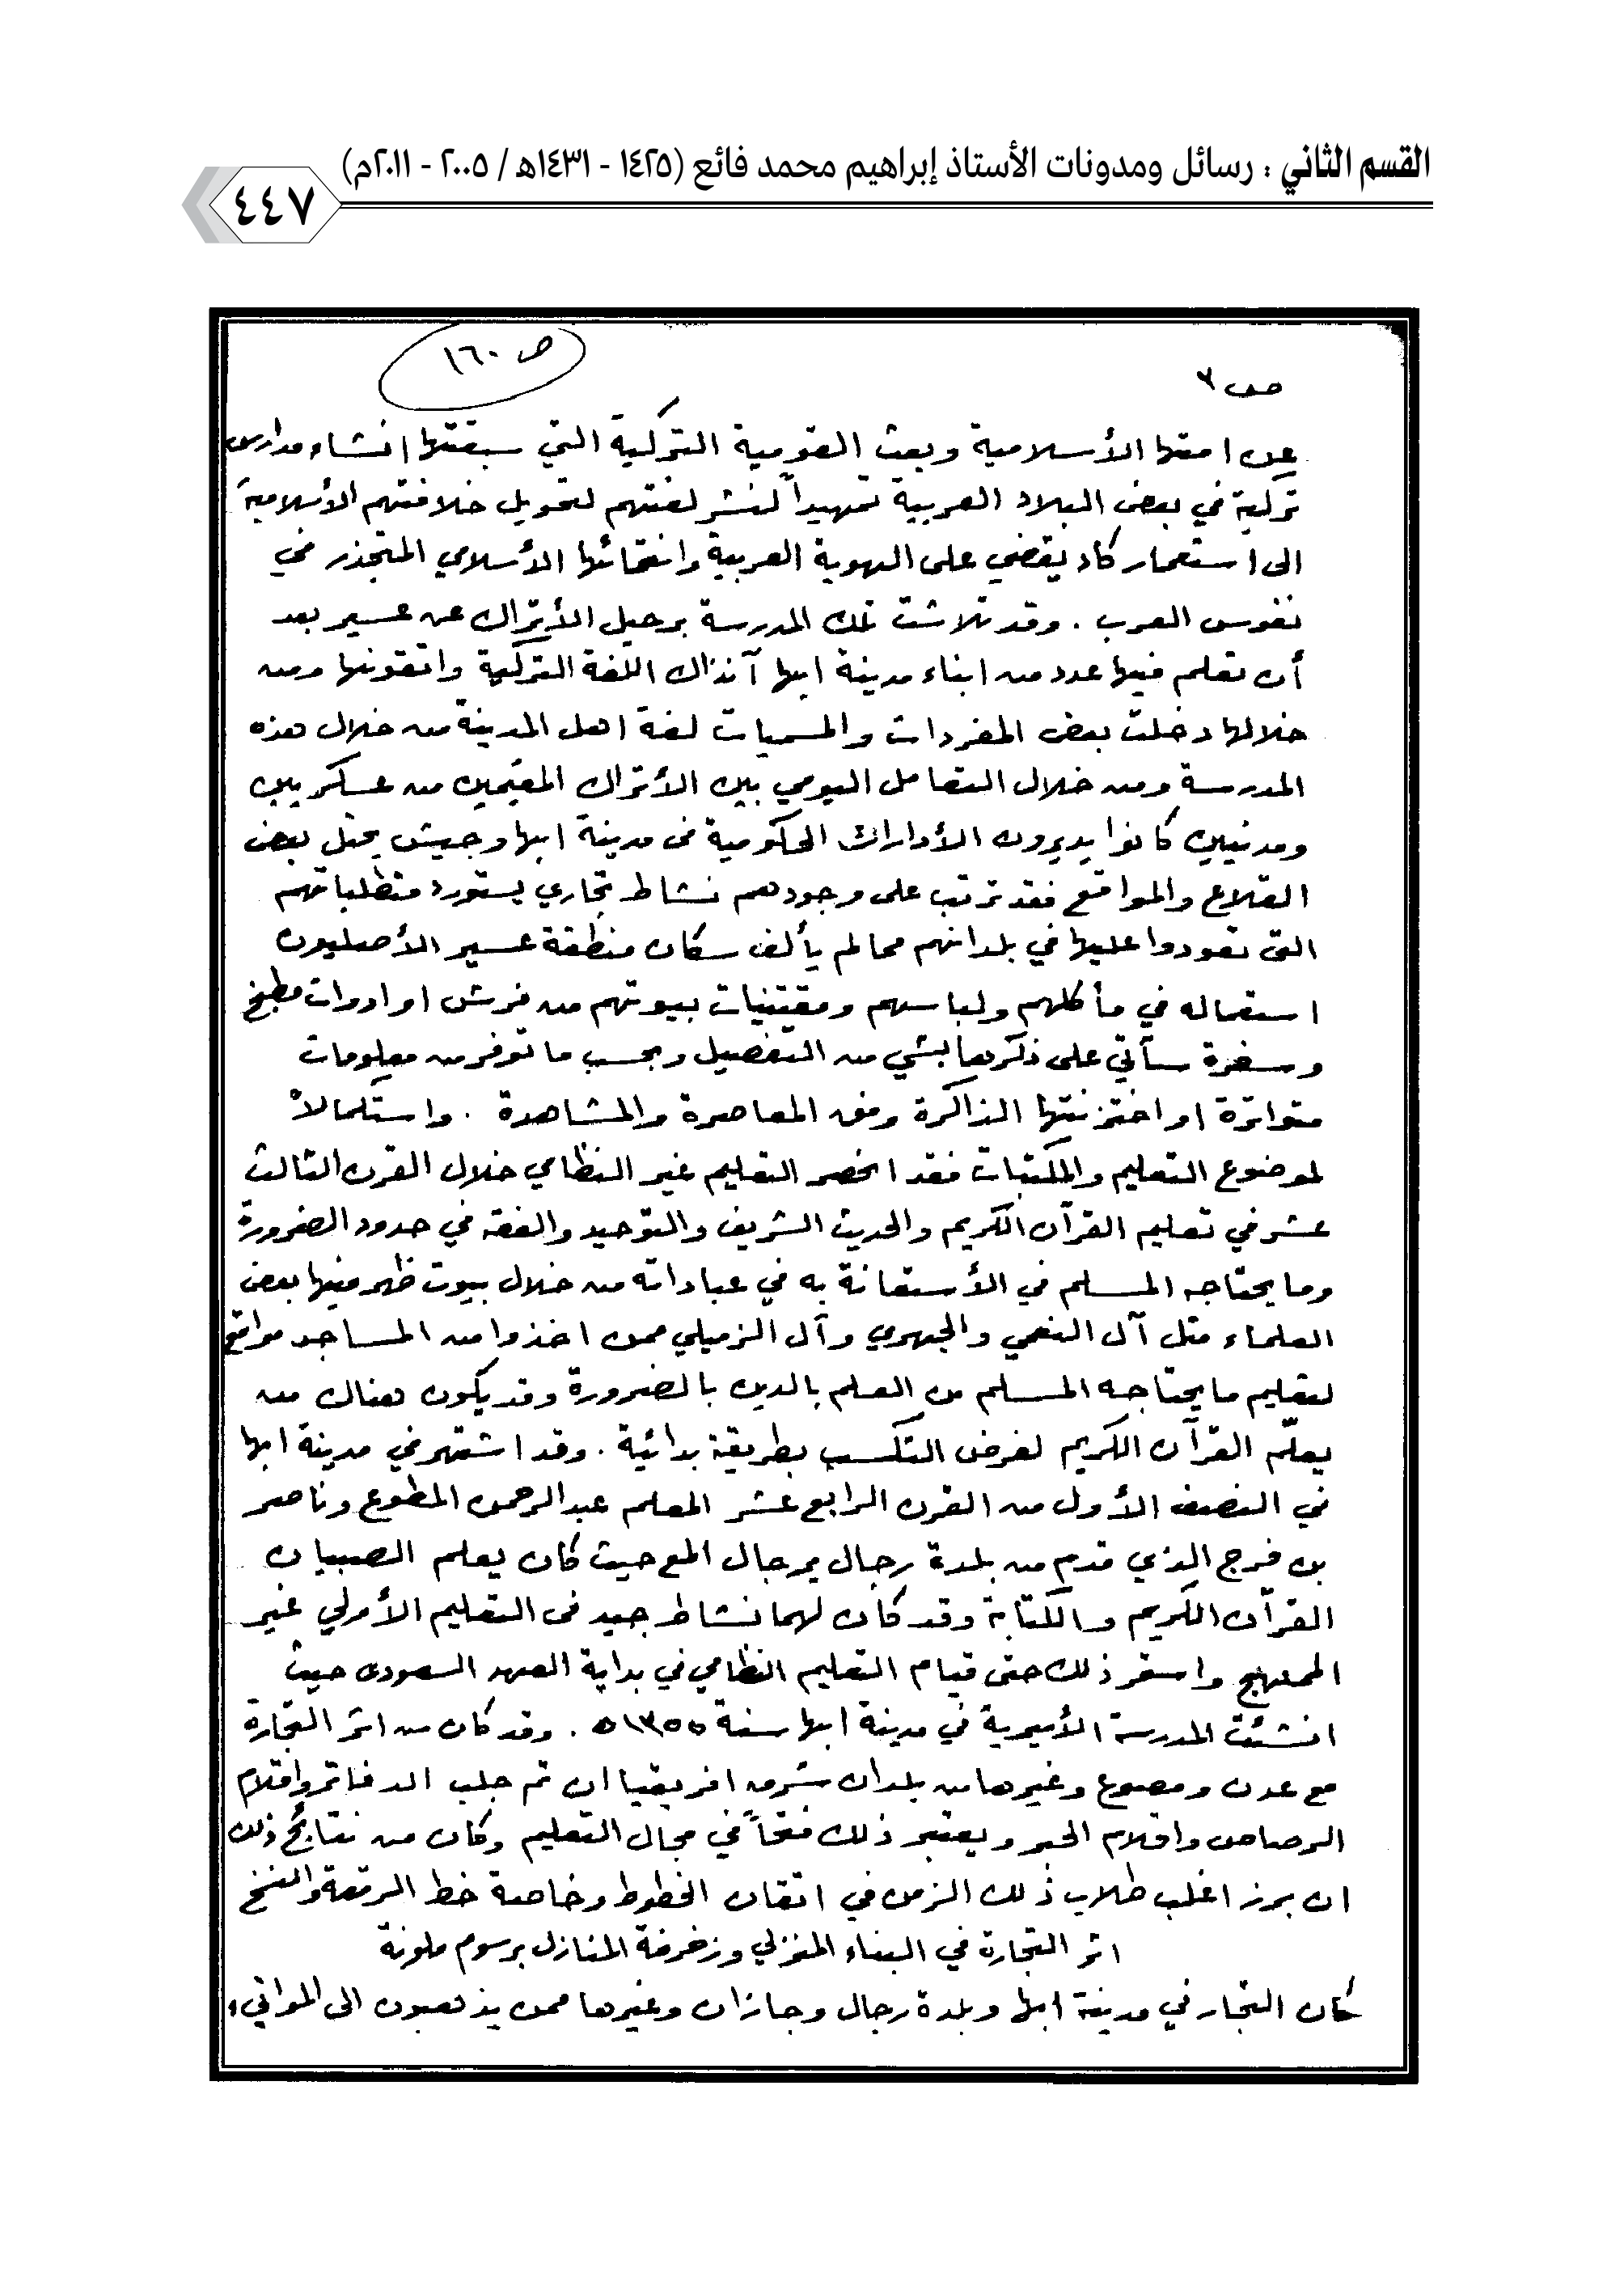 القسم الثاني : رسائل ومدونات الأستاذ إبراهيم محمد فائع (١٤٢٥ - ١٤٣١هـ / ٢٠٠٥ - ٢٠١١م)
٤٤٧
ص ١٦٠
ص ٣
عن امتها الأسلامية وبعث القومية التركية التي سبقتها انشاء مدارس
تركية في بعض البلاد العربية تمهيداً لنشر لغتهم لتحويل خلافتهم الأسلامية
الى استعمار كاد يقضي على الهوية العربية وانتمائها الأسلامي المتجذر في
نفوس العرب . وقد تلاشت تلك المدرسة برحيل الأتراك عن عسير بعد
أن تعلم فيها عدد من ابناء مدينة ابها آنذاك اللغة التركية واتقونها ومن
خلالها دخلت بعض المفردات والمسميات لغة اهل المدينة من خلال هذه
المدرسة ومن خلال التعامل اليومي بين الأتراك المقيمين من عسكريين
ومدنيين كانوا يديرون الأدارات الحكومية في مدينة ابها وجيش يحتل بعض
القلاع والمواقع فقد ترتب على وجودهم نشاط تجاري يستورد متطلباتهم
التي تعودوا عليها في بلدانهم مما لم يألف سكان منطقة عسير الأصليون
استعماله في مأكلهم ولباسهم ومقتنيات بيوتهم من فرش او ادوات مطبخ
وسفرة سآتي على ذكرها بشي من التفصيل وبحسب ما توفر من معلومات
متواترة او اختزنتها الذاكرة وفق المعاصرة والمشاهدة . واستكمالاً
لموضوع التعليم والمكتبات فقد انحصر التعليم غير النظامي خلال القرن الثالث
عشر في تعليم القرآن الكريم والحديث الشريف والتوحيد والفقه في حدود الضرورة
وما يحتاجه المسلم في الأستعانة به في عباداته من خلال بيوت ظهر فيها بعض
العلماء مثل آل النعمي والجهري وآل الزميلي ممن اخذوا من المساجد مواقع
لتعليم ما يحتاجه المسلم من العلم بالدين بالضرورة وقد يكون هناك من
يعلّم القرآن الكريم لغرض التكسب بطريقة بدائية . وقد اشتهر في مدينة ابها
في النصف الأول من القرن الرابع عشر المعلم عبدالرحمن المطوع وناصر
بن فرج الذي قدم من بلدة رجال برجال المع حيث كان يعلم الصبيان
القرآن الكريم والكتابة وقد كان لهما نشاط جيد في التعليم الأولي غير
الممنهج واستمر ذلك حتى قيام التعليم النظامي في بداية العهد السعودي حيث
انشئت المدرسة الأميرية في مدينة ابها سنة ١٣٥٥ه . وقد كان من اثر التجارة
مع عدن ومصوع وغيرها من بلدان شرق افريقيا ان تم جلب الدفاتر واقلام
الرصاص واقلام الحبر ويعتبر ذلك فتحاً في مجال التعليم وكان من نتائج ذلك
ان برز اغلب طلاب ذلك الزمن في اتقان الخطوط وخاصة خط الرقعة والنسخ
اثر التجارة في البناء المنزلي وزخرفة المنازل برسوم ملونة
كان التجار في مدينة ابها وبلدة رجال وجازان وغيرها ممن يذهبون الى المواني